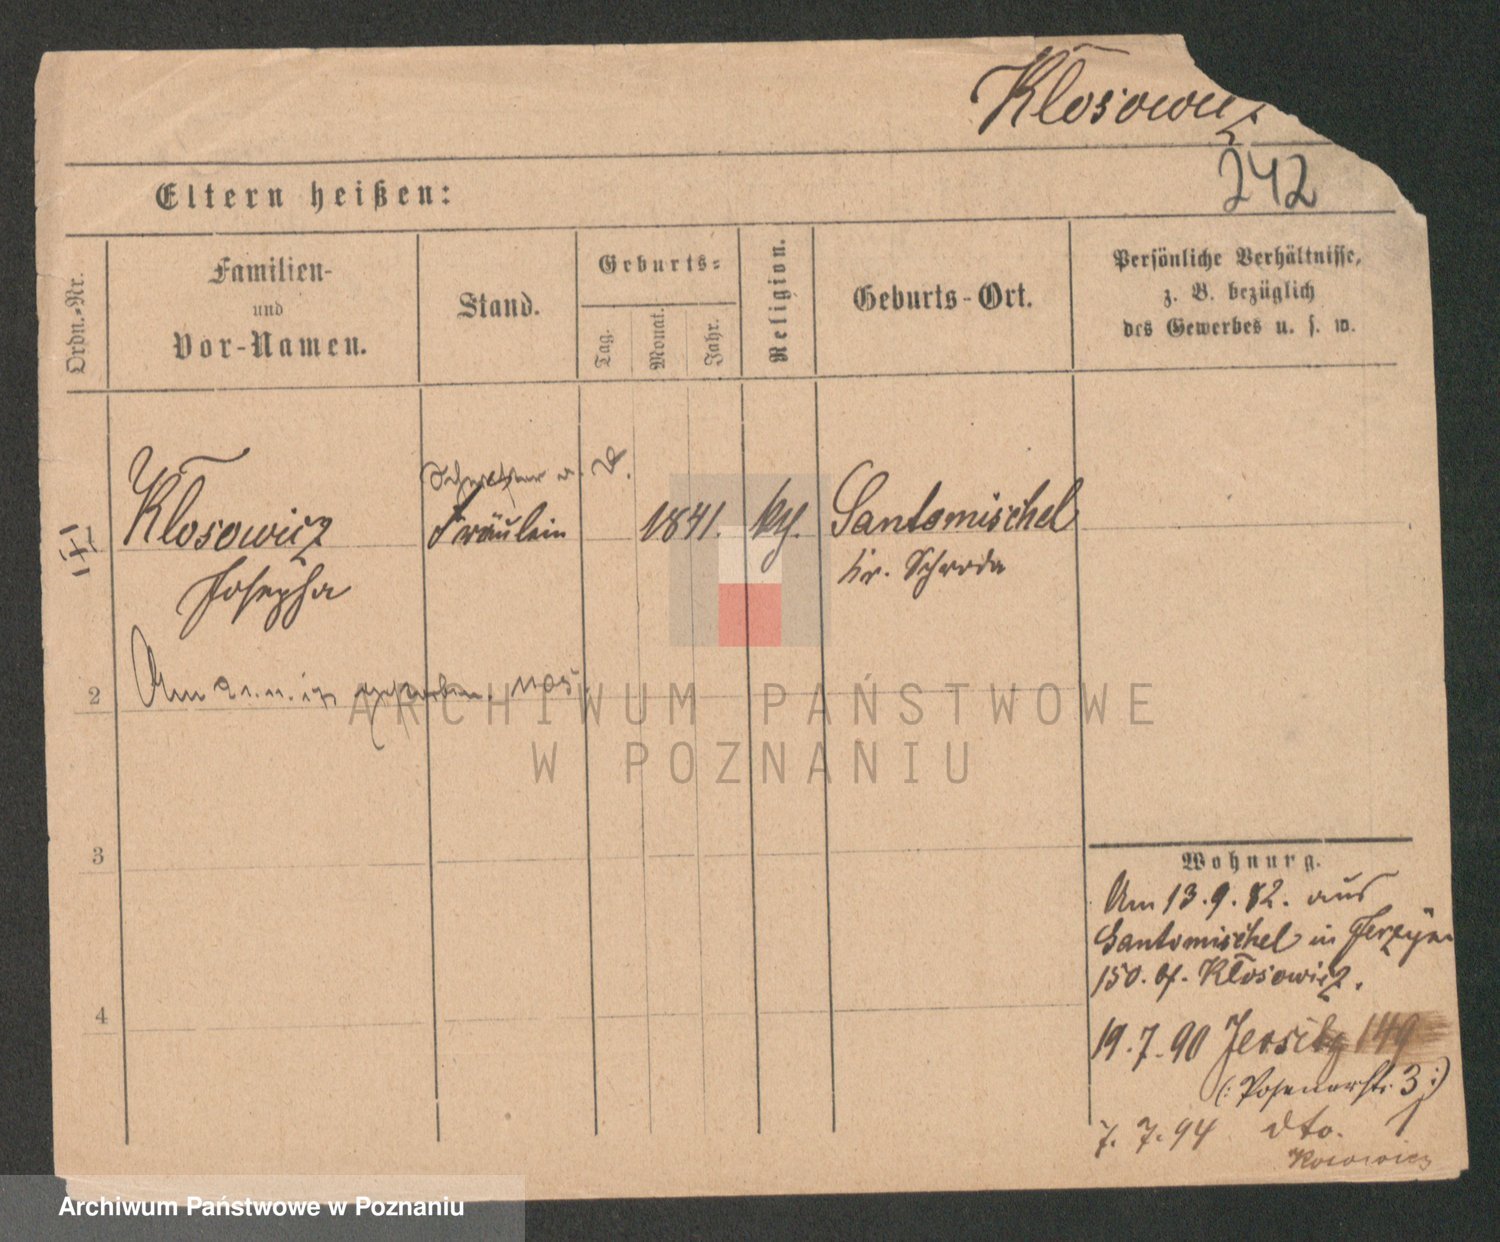 Kłosowicz
242
Eltern heißen:
Ordn.-Nr.
Familien-
und
Vor-Namen.
Stand.
Geburts-
Tag.
Monat.
Jahr.
Religion.
Geburts-Ort.
Persönliche Verhältnisse,
z. B. bezüglich
des Gewerbes u. s. w.
Kłosowicz Fräulein 1841. kth. Santomischel
Josepha Kr. Schroda
2 Am gestorben.
3
4
Wohnung.
Am 13.9.82. aus
Santomischel in
150. Kłosowicz.
19.7.90 Jersitz 149
(: Posenerstr. 3 :)
7.7.94 dto. 1
ARCHIWUM PAŃSTWOWE
W POZNANIU
Archiwum Państwowe w Poznaniu